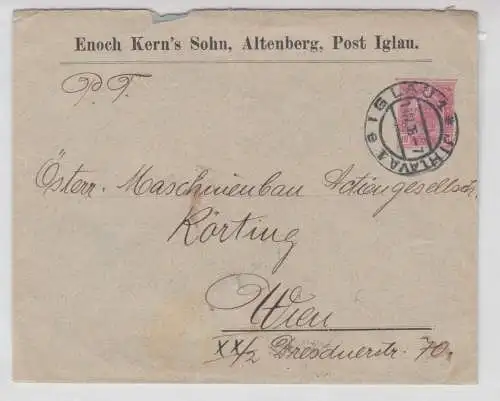 Enoch Kern's Sohn, Altenberg, Post Iglau.
P. T.
IGLAU 1 * JIHLAVA 1
Österr. Maschinenbau Actiengesellsch.
Körting
Wien
XX/2 Dresdnerstr. 70.